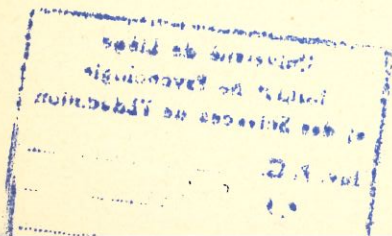 Université de Liège
Institut de Psychologie
et des Sciences de l'Education
Inv. P. G.